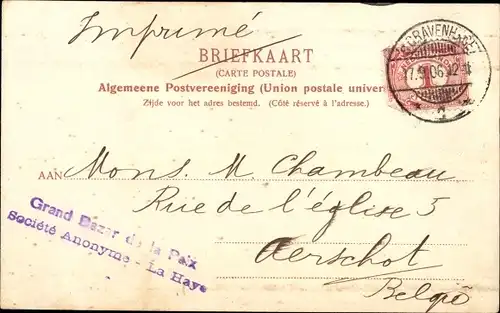 Imprimé
BRIEFKAART
(CARTE POSTALE)
Algemeene Postvereeniging (Union postale univer
Zijde voor het adres bestemd. (Côté réservé à l'adresse.)
'S GRAVENHAGE
17.9.06.12
1
AAN Mons. M. Chambeau
Rue de l'église 5
Aerschot
Belgïe
Grand Bazar de la Paix
Société Anonyme - La Haye